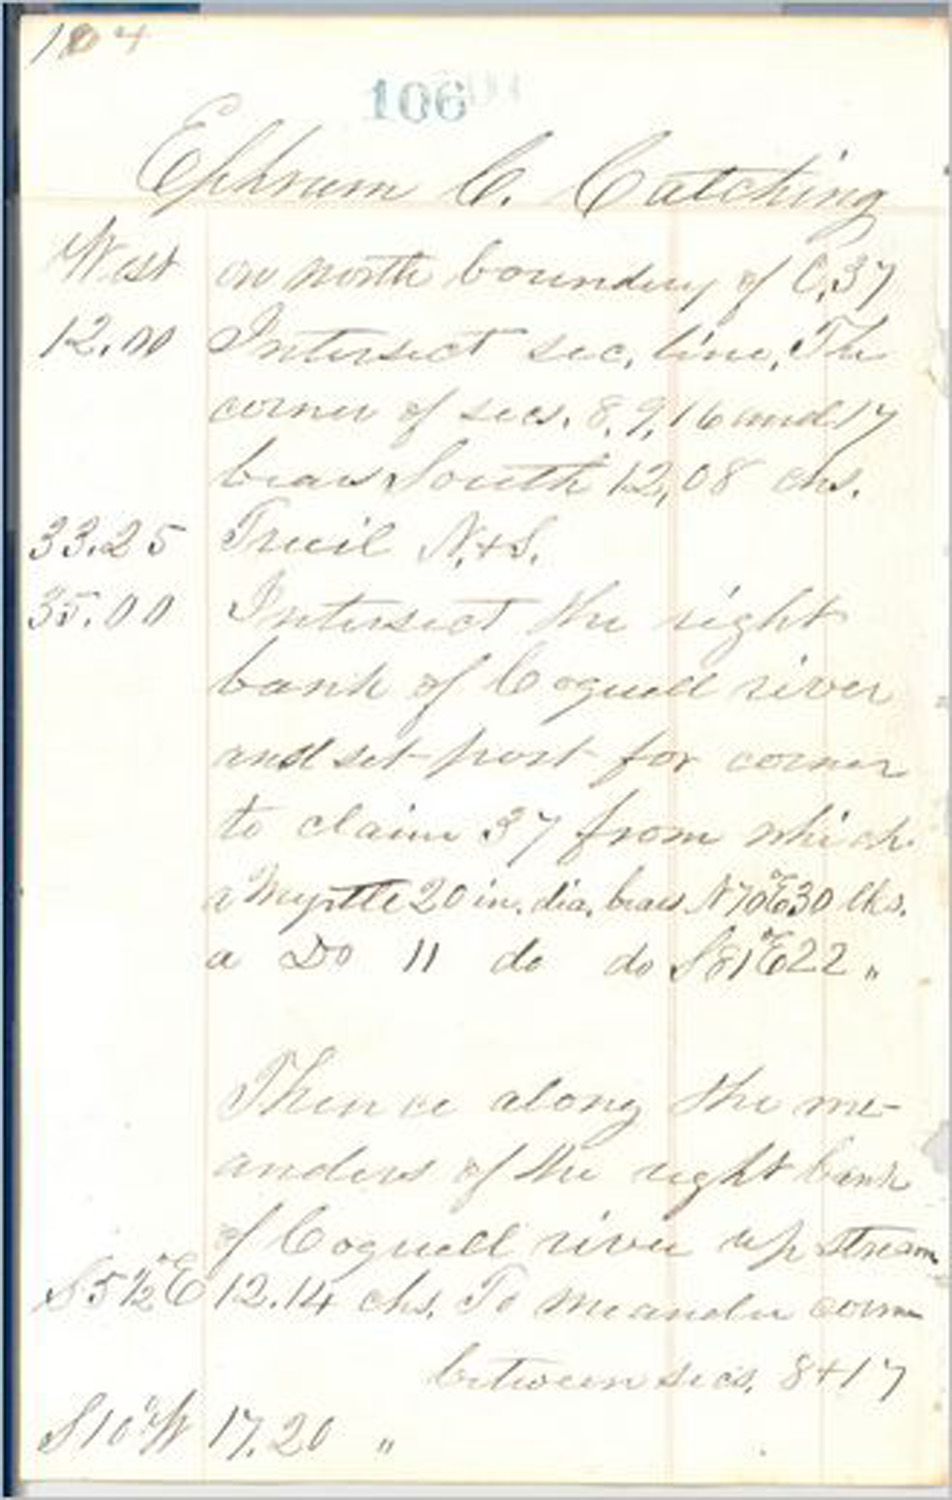 104
106
Ephraim C. Catching
West on north boundary of C. 37
12.00 Intersect sec. line, The
corner of secs. 8, 9, 16 and 17
bears South 12,08 chs.
33.25 Trail N. & S.
35.00 Intersect the right
bank of Coquell river
and set post for corner
to claim 37 from which
a Myrtle 20 in. dia. bears N70°E30 lks.
a Do 11 do do S81°E22 〃
Thence along the me-
anders of the right bank
of Coquell river up stream
S5½°E 12.14 chs. To meander corner
between secs. 8 + 17
S10°W 17.20 〃